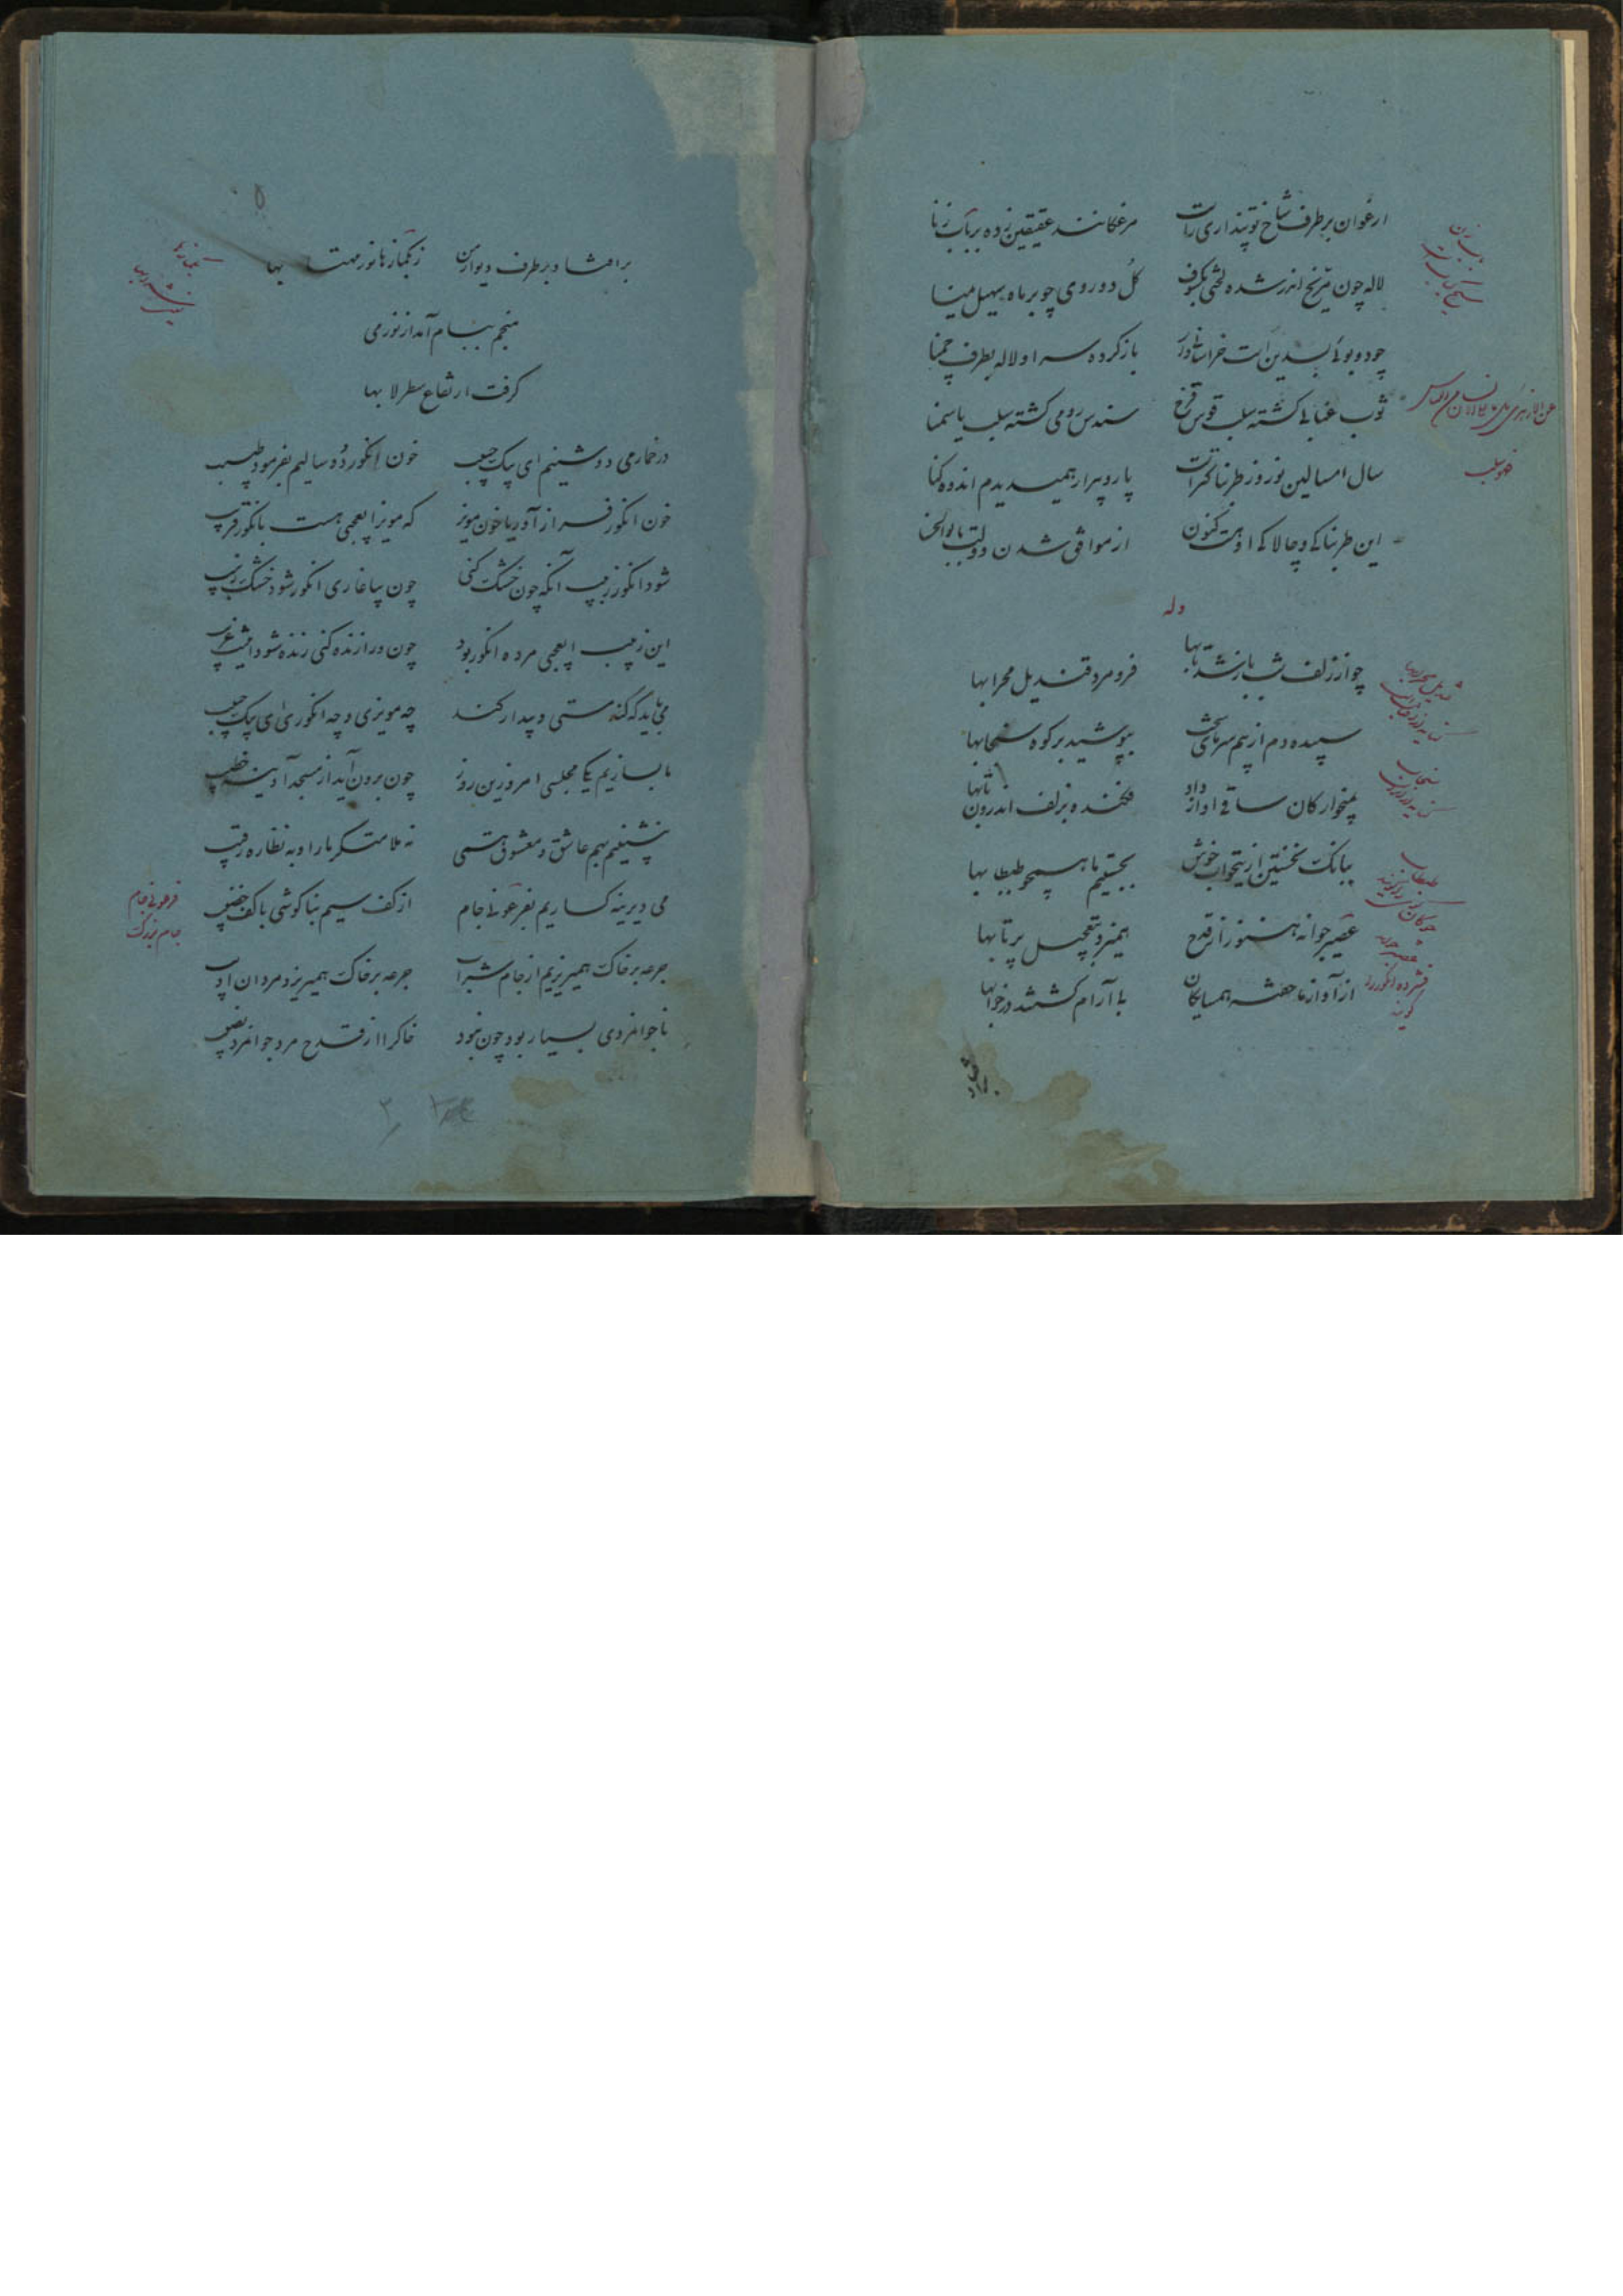 ارغوان بر طرف شاخ تو پنداری راست مرغکانند عقیقین زده بر باب زنا
لاله چون مریخ اندر شده لختی بکسوف گل دو روی چو بر ماه سهیل یمنا
چون دواتی بسدین است خراسانی وار باز کرده سر او لاله بطرف چمنا
ثوب عنابی گشته سلب قوس قزح سندس رومی گشته سلب یاسمنا
سال امسالین نوروز طربناکترست پار و پیرار همیدیدم اندوهگنا
این طربناکی و چالاکی او هست کنون از موافق شدن دولت با بوالحسنا
وله
چو از زلف شب باز شد تابها فرو مرد قندیل محرابها
سپیده دم از بیم سرمای سخت بپوشید بر کوه سنجابها
بمیخوارگان ساقی آواز داد فکنده بزلف اندرون تابها
ببانگ نخستین ازین خواب خوش بجستیم ما همچو طبطابها
عصیر جوانه هنوز از قدح همیزد بتعجیل پرتابها
از آواز ما خفته همسایگان بی آرام گشتند در خوابها
برافتاد
سنجاب
طبطاب
عصیر جوانه
فشرده انگور
بر افتاد بر طرف دیوار من ز بگمازها نور مهتابها
منجم ببام آمد از نور می
گرفت ارتفاع سطرلابها
در خماری دوشینم ای نیک حبیب خون انگور دو سالیم بفرمود طبیب
خون انگور فراز آور یا خون مویز که مویز ای عجبی هست بانگور قریب
شود انگور زبیب آنگه چون خشک کنی چون بیاغاری انگور شود خشک زبیب
این زبیب ای عجبی مرده انگور بود چون ورا زنده کنی زنده شود اینت غریب
می بباید که کند مستی و بیدار کند چه مویزی و چه انگوری ای نیک حبیب
ما بسازیم یکی مجلس امروزین روز چون برون آید از مسجد آدینه خطیب
بنشینیم بهم عاشق و معشوق همی نه ملامتگر ما را و نه نظاره رقیب
می دیرینه گساریم بفرعونی جام از کف سیم بناگوشی با کف خضیب
جرعه بر خاک همیریزیم از جام شراب جرعه بر خاک همیریزد مردان ادیب
ناجوانمردی بسیار بود چون نبود خاک را از قدح مرد جوانمرد نصیب
فرعونی جام
جام بزرگ